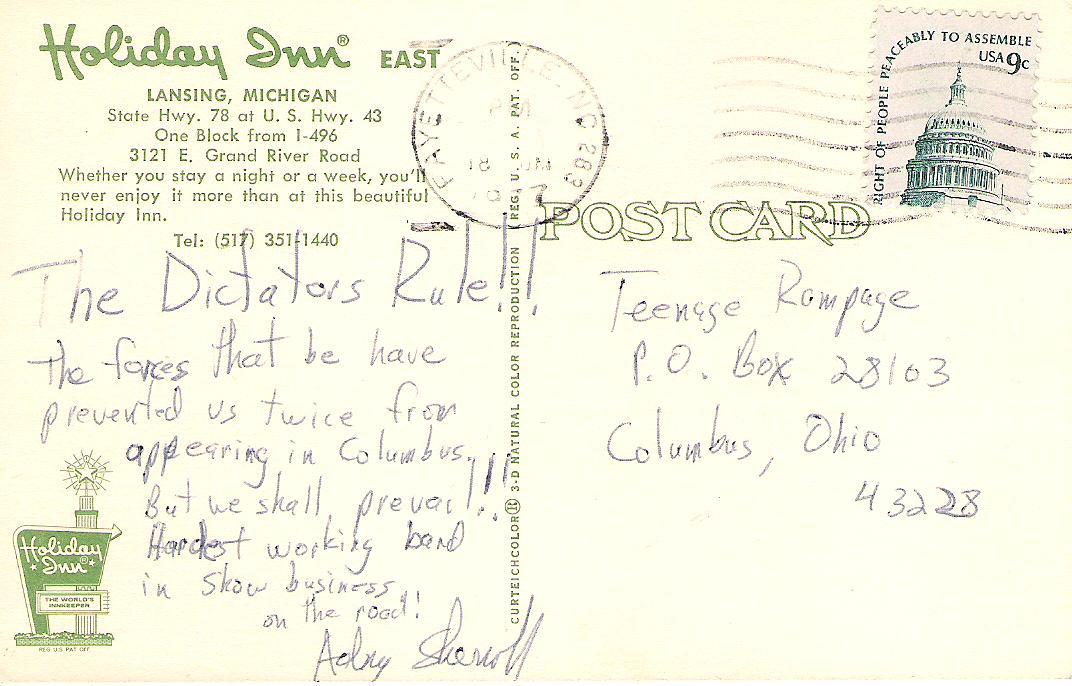 Holiday Inn® EAST
LANSING, MICHIGAN
State Hwy. 78 at U. S. Hwy. 43
One Block from I-496
3121 E. Grand River Road
Whether you stay a night or a week, you'll
never enjoy it more than at this beautiful
Holiday Inn.
Tel: (517) 351-1440
The Dictators Rule!!!
The forces that be have
prevented us twice from
appearing in Columbus.
But we shall prevail!!!
Hardest working band
in show business
on the road!
Holiday
Inn®
THE WORLD'S
INNKEEPER
REG U.S PAT OFF.
CURTEICHCOLOR® 3-D NATURAL COLOR REPRODUCTION (REG. U. S. A. PAT. OFF.)
FAYETTEVILLE, NC 283
PM
18 JUN
POST CARD
RIGHT OF PEOPLE PEACEABLY TO ASSEMBLE
USA 9c
Teenage Rampage
P.O. Box 28103
Columbus, Ohio
43228